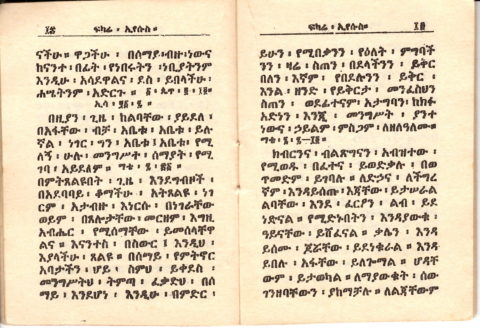 ፲፰ ፍካሬ ፡ ኢየሱስ ።
ናችሁ ። ዋጋችሁ ፡ በሰማይ ፡ ብዙ ፡ ነውና
ከናንተ ፡ በፊት ፡ የነበሩትን ፡ ነቢያትንም
እንዲሁ ፡ አሳደዋልና ፡ ደስ ፡ ይበላችሁ ፡
ሐሤትንም ፡ አድርጉ ።
በዚያን ፡ ጊዜ ፡ ከልባቸው ፡ ያይደለ ፡
በአፋቸው ፡ ብቻ ፡ አቤቱ ፡ አቤቱ ፡ ይሉ
ኛል ፡ ነገር ፡ ግን ፡ አቤቱ ፡ አቤቱ ፡ የሚ
ለኝ ፡ ሁሉ ፡ መንግሥት ፡ ሰማያት ፡ የሚ
ገባ ፡ አይደለም ።
በምትጸልዩበት ፡ ጊዜ ፡ እንደግብዞች ፡
በአደባባይ ፡ ቆማችሁ ፡ አትጸልዩ ፡ ነገ
ርም ፡ አታብዙ ፡ እነርሱ ፡ በነገራቸው
ወይም ፡ በጸሎታቸው ፡ መርዘም ፡ እግዚ
አብሔር ፡ የሚሰማቸው ፡ ይመስላቸዋ
ልና ። እናንተስ ፡ በስውር ፡ እንዲህ ፡
እያላችሁ ፡ ጸልዩ ። በሰማይ ፡ የምትኖር
አባታችን ፡ ሆይ ፡ ስምህ ፡ ይቀደስ ፡
መንግሥትህ ፡ ትምጣ ፡ ፈቃድህ ፡ በሰ
ማይ ፡ እንደሆነ ፡ እንዲሁ ፡ በምድር ፡
ፍካሬ ፡ ኢየሱስ ። ፲፱
ይሁን ፡ የሚበቃንን ፡ የዕለት ፡ ምግባች
ንን ፡ ዛሬ ፡ ስጠን ፡ በደላችንን ፡ ይቅር
በለን ፡ እኛም ፡ የበደሉንን ፡ ይቅር ፡
እንል ፡ ዘንድ ፡ የይቅርታ ፡ መንፈስህን
ስጠን ፡ ወደፈተናም ፡ አታግባን ፡ ከክፉ
አድነን ፡ እንጂ ፡ መንግሥት ፡ ያንተ
ነውና ፡ ኃይልም ፡ ምስጋም ፡ ለዘለዓለሙ ።
ክብርንና ፡ ብልጽግናን ፡ አብዝተው ፡
የሚወዱ ፡ በፈተና ፡ ይወድቃሉ ፡ በወ
ጥመድም ፡ ይገባሉ ። ለድኃና ፡ ለችግረ
ኛም ፡ እንዳይሰጡ ፡ እጃቸው ፡ ይታሠራል
ልባቸው ፡ እንደ ፡ ፈርዖን ፡ ልብ ፡ ይደ
ነድናል ። የሚድኑበትን ፡ እንዳያውቁ ፡
ዓይናቸው ፡ ይሸፈናል ። ቃሌን ፡ እንዳ
ይሰሙ ፡ ጆሯቸው ፡ ይደነቁራል ። እንዳ
ይበሉ ፡ አፋቸው ፡ ይለጎማል ። ሆዳቸ
ውም ፡ ይታወካል ። ለማያውቁት ፡ ሰው
ገንዘባቸውን ፡ ያከማቻሉ ። ለልጃቸውም